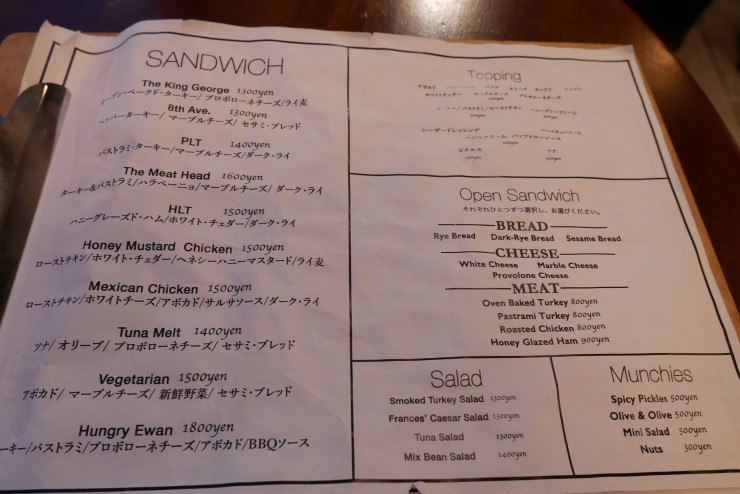 SANDWICH
The King George 1300yen
オーブン・ベークド・ターキー/ プロボローネチーズ/ライ麦
6th Ave. 1300yen
ペッパーターキー/ マーブルチーズ/ セサミ・ブレッド
PLT 1400yen
パストラミ・ターキー/マーブルチーズ/ダーク・ライ
The Meat Head 1600yen
ターキー&パストラミ/ハラペーニョ/マーブルチーズ/ ダーク・ライ
HLT 1500yen
ハニーグレーズド・ハム/ホワイト・チェダー/ダーク・ライ
Honey Mustard Chicken 1500yen
ローストチキン/ホワイト・チェダー/ヘネシーハニーマスタード/ライ麦
Mexican Chicken 1500yen
ローストチキン/ホワイトチーズ/アボカド/サルサソース/ダーク・ライ
Tuna Melt 1400yen
ツナ/ オリーブ/ プロボローネチーズ/ セサミ・ブレッド
Vegetarian 1500yen
アボカド/ マーブルチーズ/ 新鮮野菜/ セサミ・ブレッド
Hungry Ewan 1800yen
ーキー/パストラミ/プロボローネチーズ/アボカド/BBQソース
Topping
アボカド
ホワイトチェダー マーブルチーズ プロボローネチーズ
シーザードレッシング
ピクルス ツナ
Open Sandwich
それぞれひとつずつ選択し、お選びください。
BREAD
Rye Bread Dark-Rye Bread Sesame Bread
CHEESE
White Cheese Marble Cheese
Provolone Cheese
MEAT
Oven Baked Turkey 800yen
Pastrami Turkey 800yen
Roasted Chicken 800yen
Honey Glazed Ham 900yen
Salad
Smoked Turkey Salad 1300yen
Frances' Caesar Salad 1300yen
Tuna Salad 1300yen
Mix Bean Salad 1400yen
Munchies
Spicy Pickles 500yen
Olive & Olive 500yen
Mini Salad 500yen
Nuts 300yen